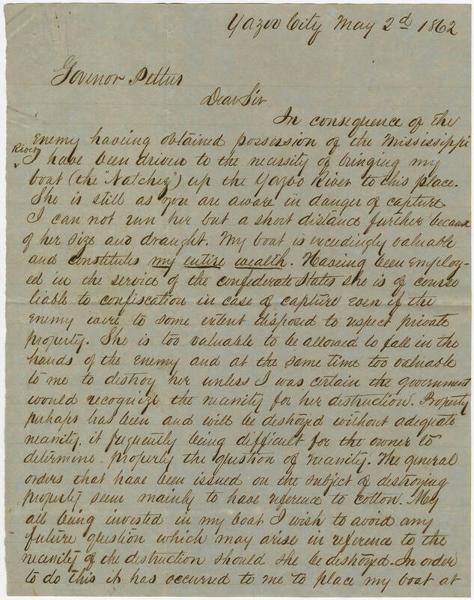 Yazoo City May 2d 1862
Govenor Pettus
Dear Sir
In consequence of the
enemy having obtained possession of the Mississippi
River
I have been driven to the necssity of bringing my
boat (the "Natchez") up the Yazoo River to this place.
She is still as you are aware in danger of capture
I can not run her but a short distance further because
of her size and draught. My boat is exceedingly valuable
and constitutes my entire wealth. Having been employ-
ed in the service of the confederate States she is of course
liable to confiscation in case of capture even if the
enemy were to some extent disposed to respect private
property. She is too valuable to be allowed to fall in the
hands of the enemy and at the same time too valuable
to me to destroy her unless I was certain the government
would recognize the necessity for her destruction. Property
perhaps has been and will be destroyed without adequate
necessity, it frequently being difficult for the owner to
determine properly the question of necessity. The general
orders that have been issued on the subject of destroying
property seem mainly to have reference to cotton. My
all being invested in my boat I wish to avoid any
future question which may arise in reference to the
necessity of the destruction should she be destroyed. In order
to do this it has occurred to me to place my boat at